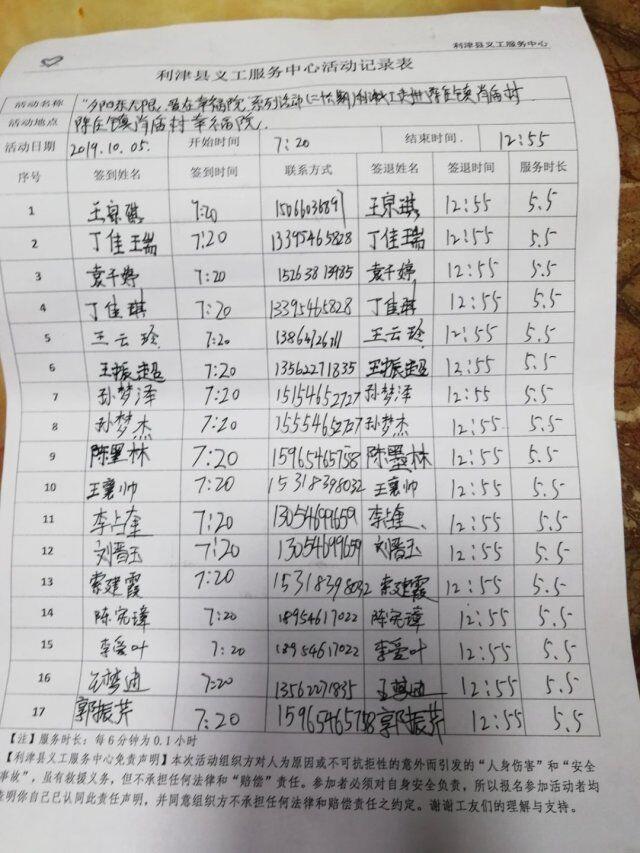 利津县义工服务中心
利津县义工服务中心活动记录表
活动名称 "夕阳无限 爱在幸福院"系列活动 陈庄镇肖庙村
活动地点 陈庄镇肖庙村幸福院
活动日期 2019.10.05. 开始时间 7:20 结束时间. 12:55
序号 签到姓名 签到时间 联系方式 签退姓名 签退时间 服务时长
1 王泉琪 7:20 王泉琪 12:55 5.5
2 丁佳瑞 7:20 13395465828 丁佳瑞 12:55 5.5
3 袁千婷 7:20 15263813985 袁千婷 12:55 5.5
4 丁佳琪 7:20 13395465828 丁佳琪 12:55 5.5
5 王云玲 7:20 王云玲 12:55 5.5
6 王振超 7:20 13562271835 王振超 12:55 5.5
7 孙梦泽 7:20 15154652727 孙梦泽 12:55 5.5
8 孙梦杰 7:20 15554652727 孙梦杰 12:55 5.5
9 陈墨林 7:20 15965465758 陈墨林 12:55 5.5
10 王襄帅 7:20 15318398032 王襄帅 12:55 5.5
11 李占奎 7:20 13054699659 李占奎 12:55 5.5
12 刘晋玉 7:20 13054699659 刘晋玉 12:55 5.5
13 索建霞 7:20 15318398032 索建霞 12:55 5.5
14 陈宪璋 7:20 18954617022 陈宪璋 12:55 5.5
15 李爱叶 7:20 18954617022 李爱叶 12:55 5.5
16 王梦迪 7:20 13562271835 王梦迪 12:55 5.5
17 郭振芹 7:20 15965465758 郭振芹 12:55 5.5
【注】服务时长：每6分钟为0.1小时
【利津县义工服务中心免责声明】本次活动组织方对人为原因或不可抗拒性的意外而引发的"人身伤害"和"安全
事故"，虽有救援义务，但不承担任何法律和"赔偿"责任。参加者必须对自身安全负责，所以报名参加活动者均
表明你自己已认同此责任声明，并同意组织方不承担任何法律和赔偿责任之约定。谢谢工友们的理解与支持。